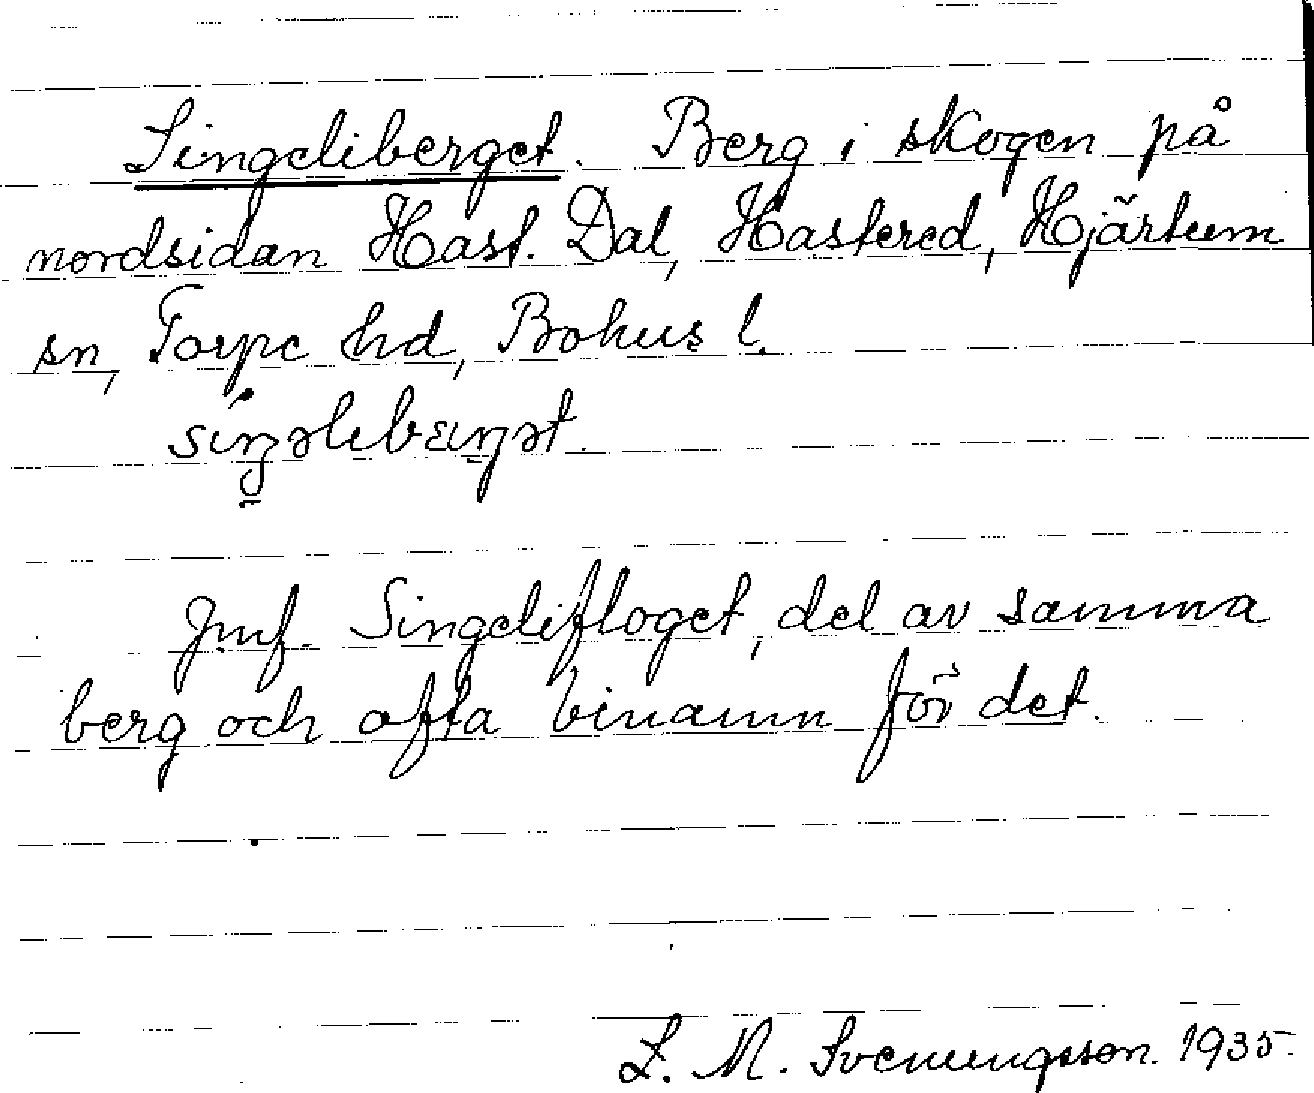 Singeliberget. Berg i skogen på
nordsidan Hast. Dal, Hastered, Hjärtum
sn, Torpe hd, Bohus l.
Jmf. Singelifloget, del av samma
berg och ofta binamn för det.
L. M. Svenungsson. 1935.